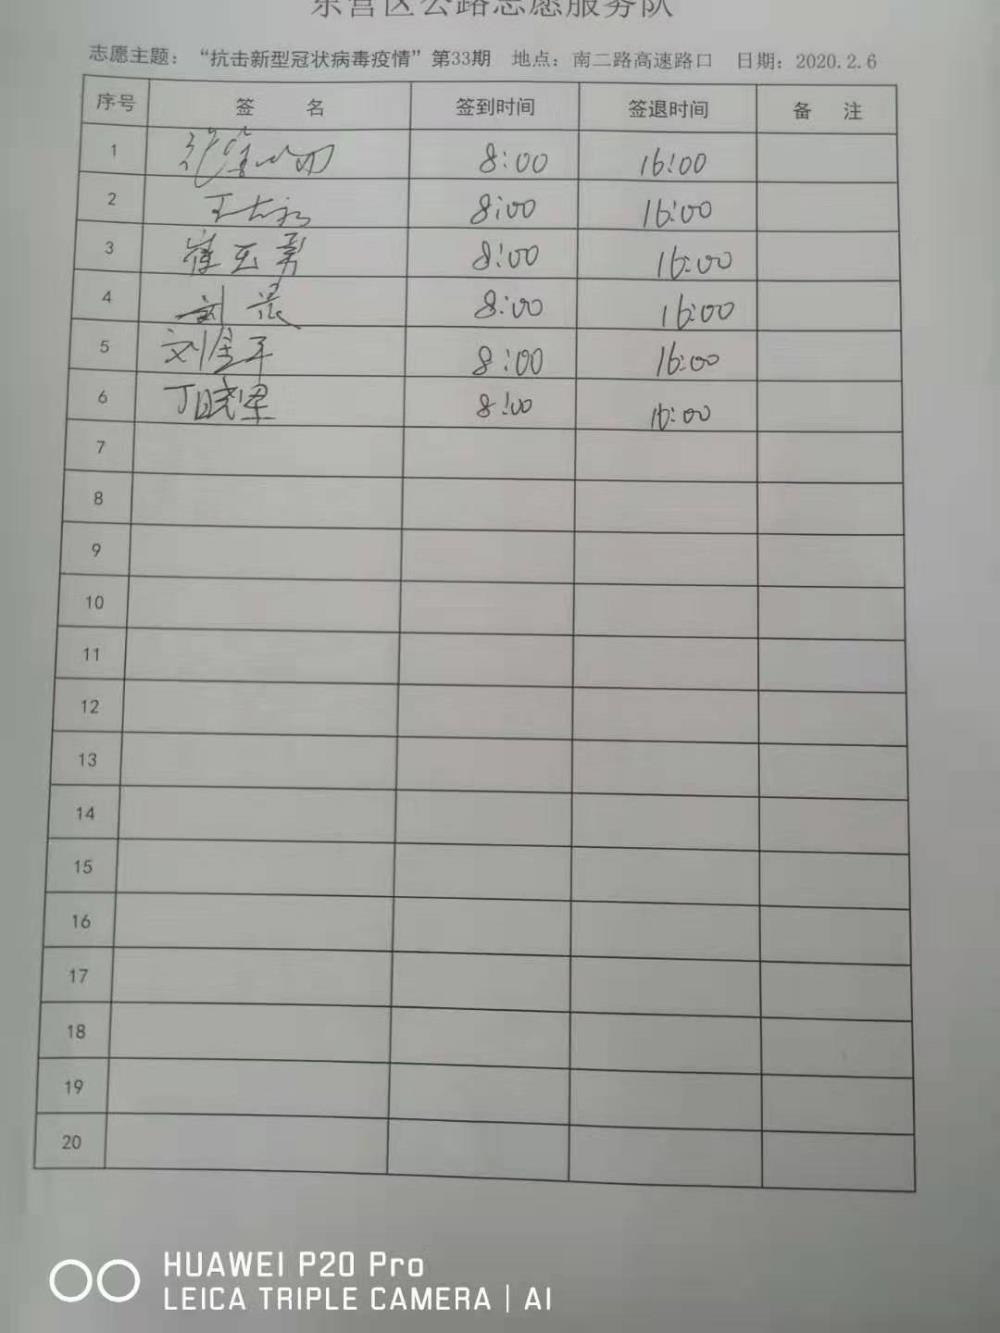 东营区公路志愿服务队
志愿主题：“抗击新型冠状病毒疫情”第33期 地点：南二路高速路口 日期：2020.2.6
序号 签 名 签到时间 签退时间 备 注
1 8:00 16:00
2 8:00 16:00
3 崔玉勇 8:00 16:00
4 刘 8:00 16:00
5 刘金平 8:00 16:00
6 丁晓军 8:00 16:00
7
8
9
10
11
12
13
14
15
16
17
18
19
20
HUAWEI P20 Pro
LEICA TRIPLE CAMERA | AI